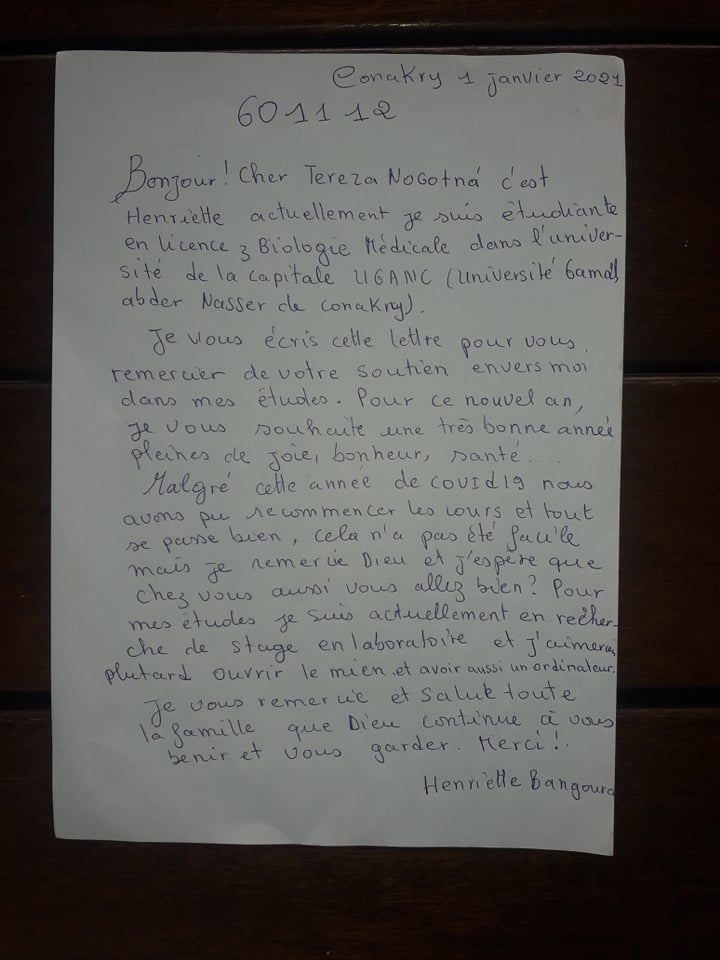 Conakry 1 janvier 2021
601112
Bonjour! Cher Tereza Nogotná c'est
Henriette actuellement je suis étudiante
en licence 3 Biologie Médicale dans l'univer-
sité de la capitale UGANC (Université Gamal
abder Nasser de Conakry).
Je vous écris cette lettre pour vous
remercier de votre soutien envers moi
dans mes études. Pour ce nouvel an,
je vous souhaite une très bonne année
pleines de joie, bonheur, santé....
Malgré cette année de covid19 nous
avons pu recommencer les cours et tout
se passe bien, cela n'a pas été facile
mais je remercie Dieu et j'espère que
chez vous aussi vous allez bien? Pour
mes études je suis actuellement en recher-
che de stage en laboratoire et j'aimerai
plutard ouvrir le mien et avoir aussi un ordinateur.
Je vous remercie et salue toute
la famille que Dieu continue à vous
benir et vous garder. Merci!.
Henriette Bangoura